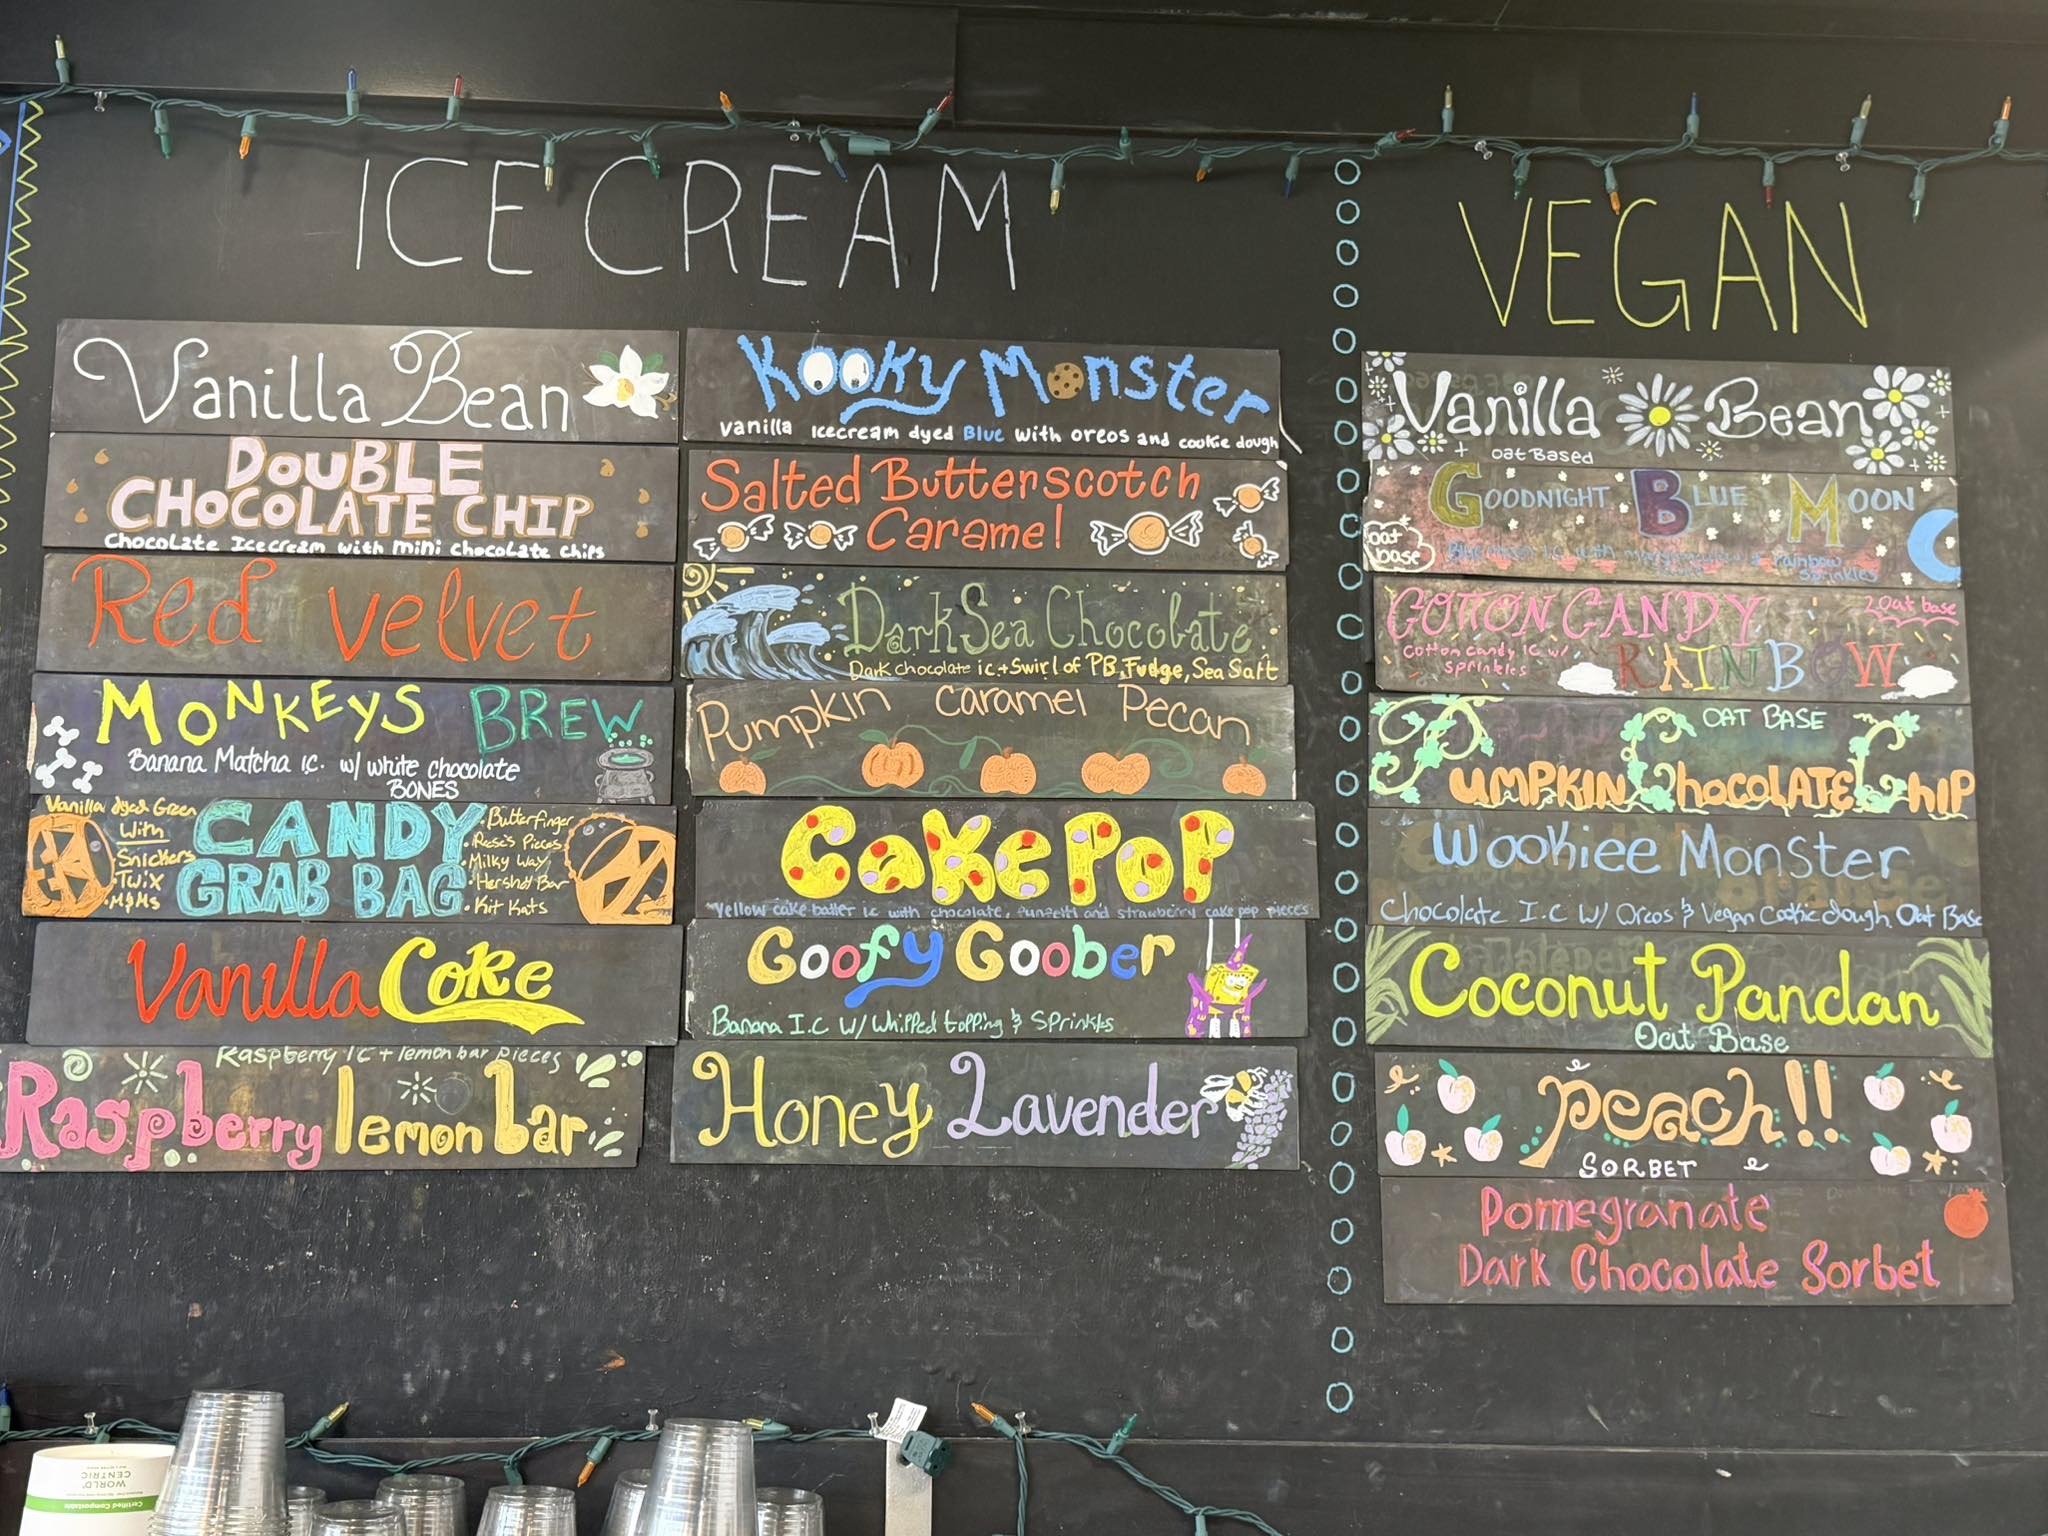 ICE CREAM
Vanilla Bean
DOUBLE
CHOCOLATE CHIP
Chocolate Icecream with mini chocolate chips
Red Velvet
MONKEYS BREW
Banana Matcha i.c. w/ white chocolate
BONES
Vanilla dyed Green
With
• Snickers
• Twix
• M&Ms
CANDY
GRAB BAG
• Butterfinger
• Reese's Pieces
• Milky Way
• Hershey Bar
• Kit Kats
Vanilla Coke
Raspberry IC + lemon bar pieces
Raspberry lemon bar
Kooky Monster
vanilla Icecream dyed Blue with oreos and cookie dough
Salted Butterscotch
Caramel
Dark Sea Chocolate
Dark chocolate i.c. + Swirl of PB, Fudge, Sea Salt
Pumpkin Caramel Pecan
Cake Pop
Yellow cake batter i.c with chocolate, funfetti and strawberry cake pop pieces
Goofy Goober
Banana I.C W/ Whipped topping & Sprinkles
Honey Lavender
VEGAN
Vanilla Bean
oat Based
GOODNIGHT BLUE MOON
oat
base
Blue moon i.c with marshmallow & rainbow
sprinkles
COTTON CANDY
oat base
cotton candy IC w/
sprinkles
RAINBOW
OAT BASE
PUMPKIN CHOCOLATE CHIP
Wookiee Monster
Chocolate I.C W/ Oreos & Vegan Cookie dough Oat Base
Coconut Pandan
Oat Base
peach!!
SORBET
Pomegranate
Dark Chocolate Sorbet
WORLD
CENTRIC
Certified Compostable